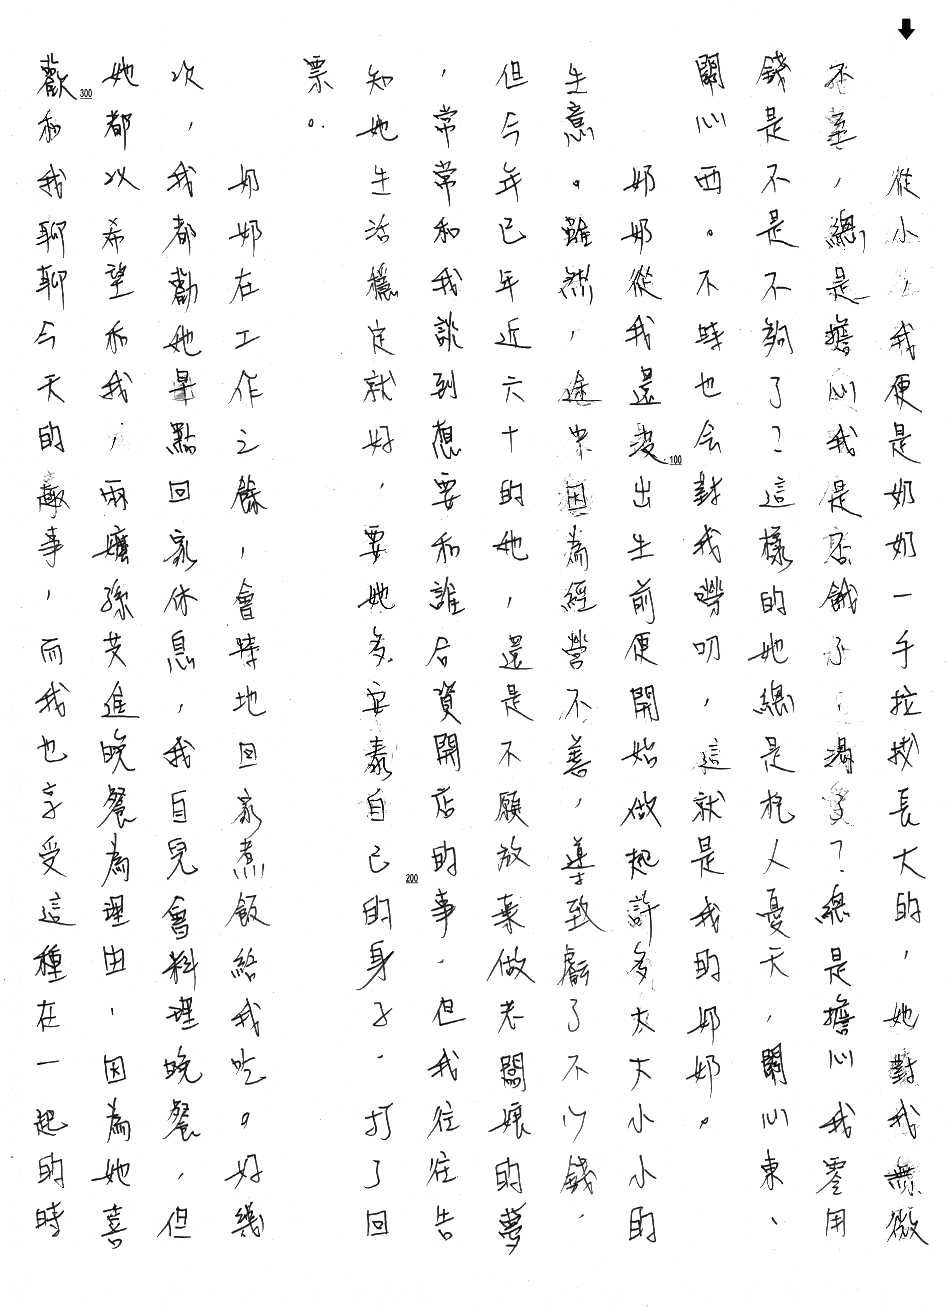 從小,我便是奶奶一手拉拔長大的,她對我無微
不至,總是擔心我是否餓了,渴了?總是擔心我零用
錢是不是不夠了?這樣的她總是杞人憂天,關心東、
關心西。不時也會對我嘮叨,這就是我的奶奶。
奶奶從我還沒出生前便開始做起許多大大小小的
生意。雖然,途中因為經營不善,導致虧了不少錢,
但今年已年近六十的她,還是不願放棄做老闆娘的夢
,常常和我談到想要和誰合資開店的事,但我往往告
知她生活穩定就好,要她多安泰自己的身子,打了回
票。
奶奶在工作之餘,會特地回家煮飯給我吃。好幾
次,我都勸她早點回家休息,我自兒會料理晚餐,但
她都以希望和我,兩嬤孫共進晚餐為理由,因為她喜
歡和我聊聊今天的趣事,而我也享受這種在一起的時
100
200
300